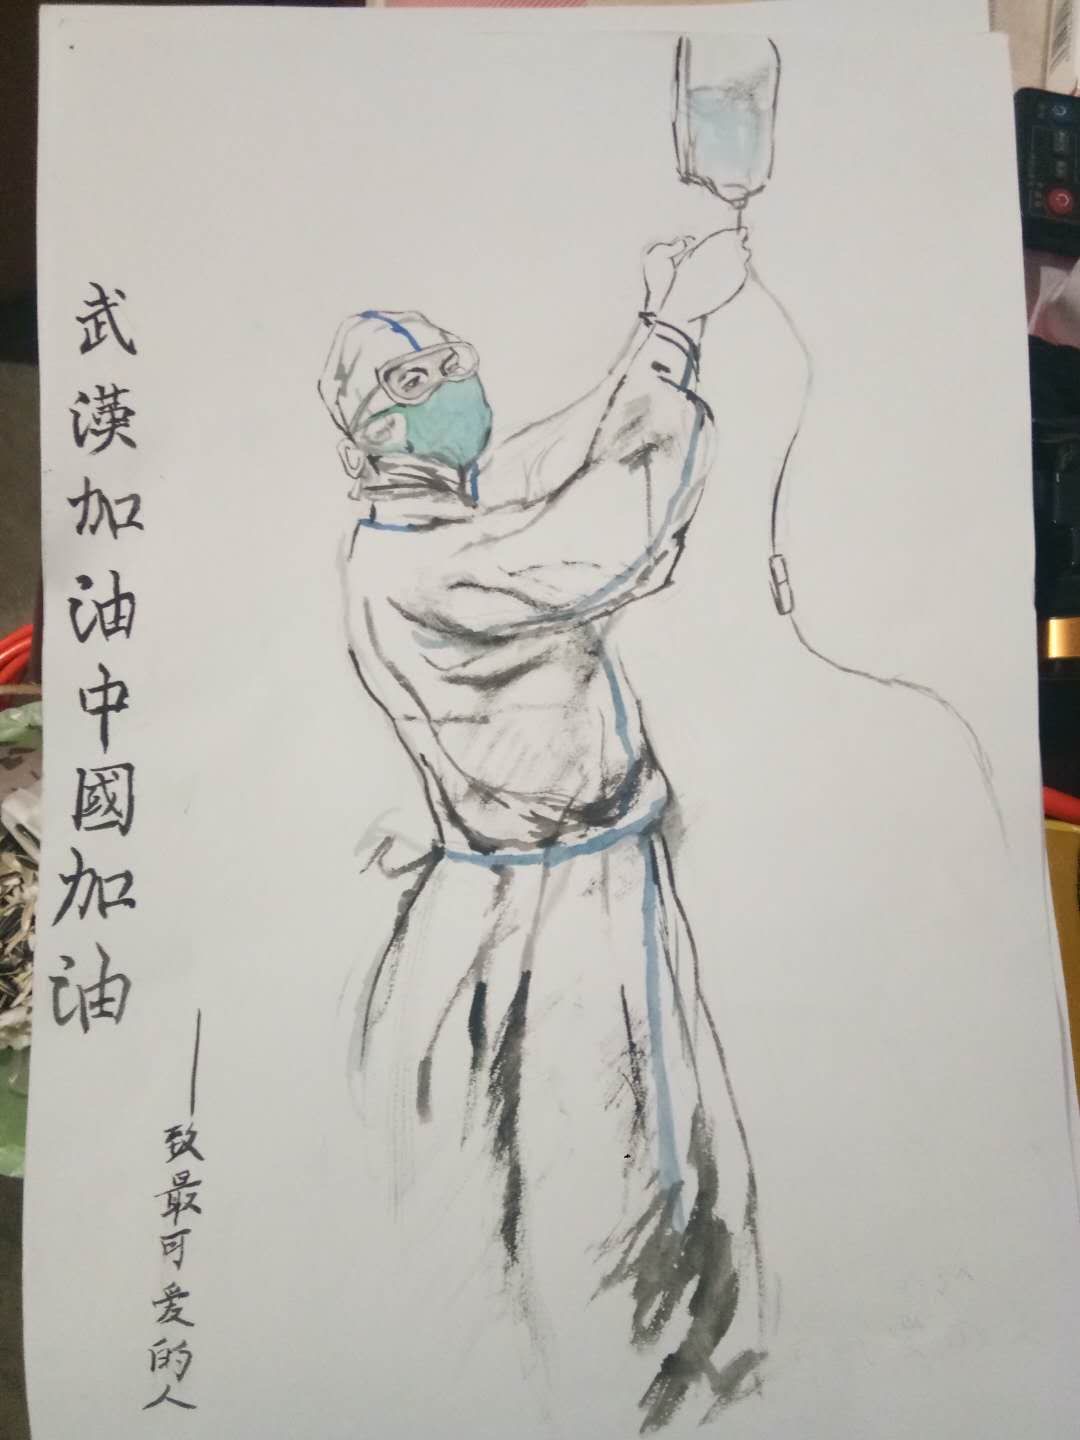 武漢加油中國加油
——致最可爱的人